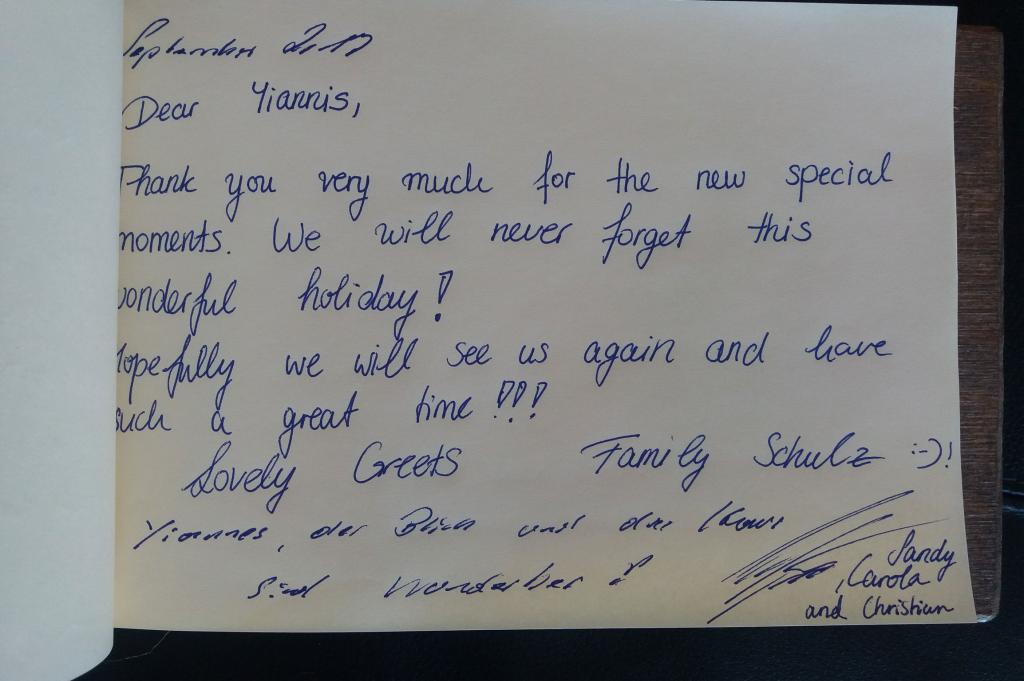 September 2017
Dear Yiannis,
Thank you very much for the new special
moments. We will never forget this
wonderful holiday!
Hopefully we will see us again and have
such a great time!!!
Lovely Greets Family Schulz :-)!
Yiannes, der Blick und die
sind wunderbar!
Sandy
, Carola
and Christian